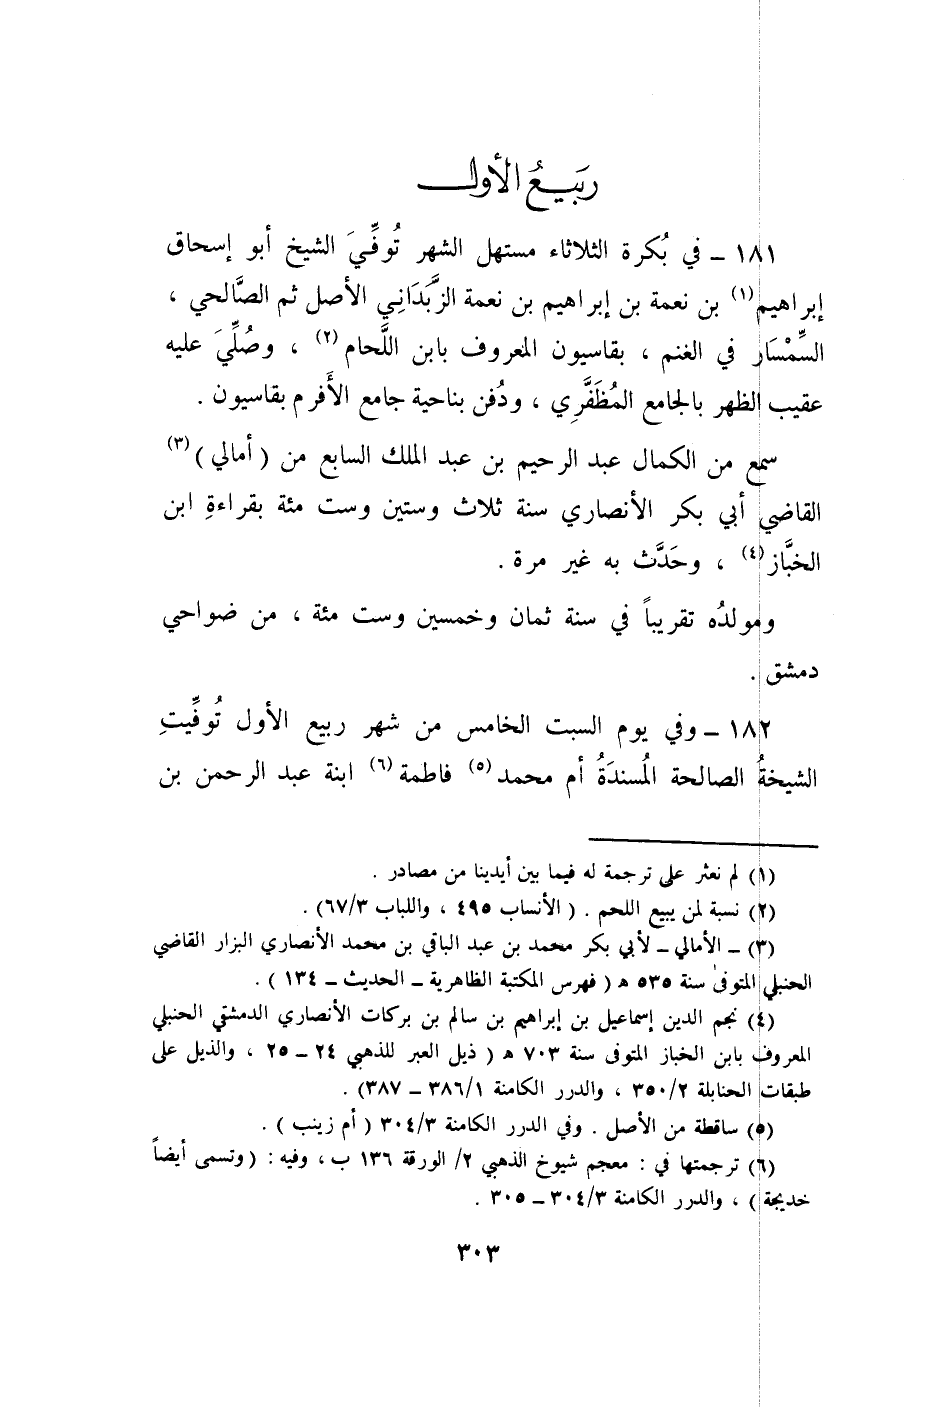 ربيع الأول
١٨١ ــ في بُكرة الثلاثاء مستهل الشهر تُوفِّيَ الشيخ أبو إسحاق
إبراهيم(١) بن نعمة بن إبراهيم بن نعمة الزَّبَدَانِي الأصل ثم الصَّالحي ،
السِّمْسَار في الغنم ، بقاسيون المعروف بابن اللَّحام(٢) ، وصُلِّيَ عليه
عقيب الظهر بالجامع المُظَفَّرِي ، ودُفن بناحية جامع الأَفرم بقاسيون .
سمع من الكمال عبد الرحيم بن عبد الملك السابع من ( أمالي )(٣)
القاضي أبي بكر الأنصاري سنة ثلاث وستين وست مئة بقراءةِ ابن
الخبَّاز(٤) ، وحَدَّث به غير مرة .
ومولدُه تقريباً في سنة ثمان وخمسين وست مئة ، من ضواحي
دمشق .
١٨٢ ــ وفي يوم السبت الخامس من شهر ربيع الأول تُوفِّيتِ
الشيخةُ الصالحة المُسندَةُ أم محمد(٥) فاطمة(٦) ابنة عبد الرحمن بن
(١) لم نعثر على ترجمة له فيما بين أيدينا من مصادر .
(٢) نسبة لمن يبيع اللحم . ( الأنساب ٤٩٥ ، واللباب ٦٧/٣) .
(٣) ــ الأمالي ــ لأبي بكر محمد بن عبد الباقي بن محمد الأنصاري البزار القاضي
الحنبلي المتوفى سنة ٥٣٥ هـ ( فهرس المكتبة الظاهرية ــ الحديث ــ ١٣٤ ) .
(٤) نجم الدين إسماعيل بن إبراهيم بن سالم بن بركات الأنصاري الدمشقي الحنبلي
المعروف بابن الخباز المتوفى سنة ٧٠٣ هـ ( ذيل العبر للذهبي ٢٤ ــ ٢٥ ، والذيل على
طبقات الحنابلة ٣٥٠/٢ ، والدرر الكامنة ٣٨٦/١ ــ ٣٨٧) .
(٥) ساقطة من الأصل . وفي الدرر الكامنة ٣٠٤/٣ ( أم زينب ) .
(٦) ترجمتها في : معجم شيوخ الذهبي ٢/ الورقة ١٣٦ ب ، وفيه : ( وتسمى أيضاً
خديجة ) ، والدرر الكامنة ٣٠٤/٣ ــ ٣٠٥ .
٣٠٣